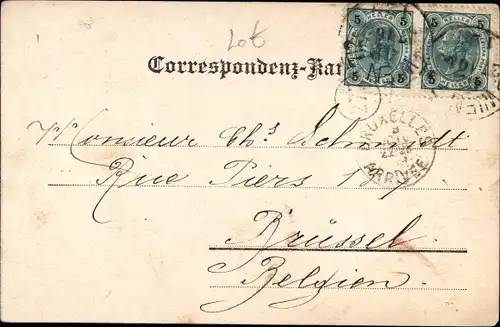 Lot
5 HELLER 5
5 HELLER 5
Correspondenz-Kar
Monsieur Chs Schmidt
BRUXELLES
ARRIVEE
Rue Piers
Brüssel
Belgien